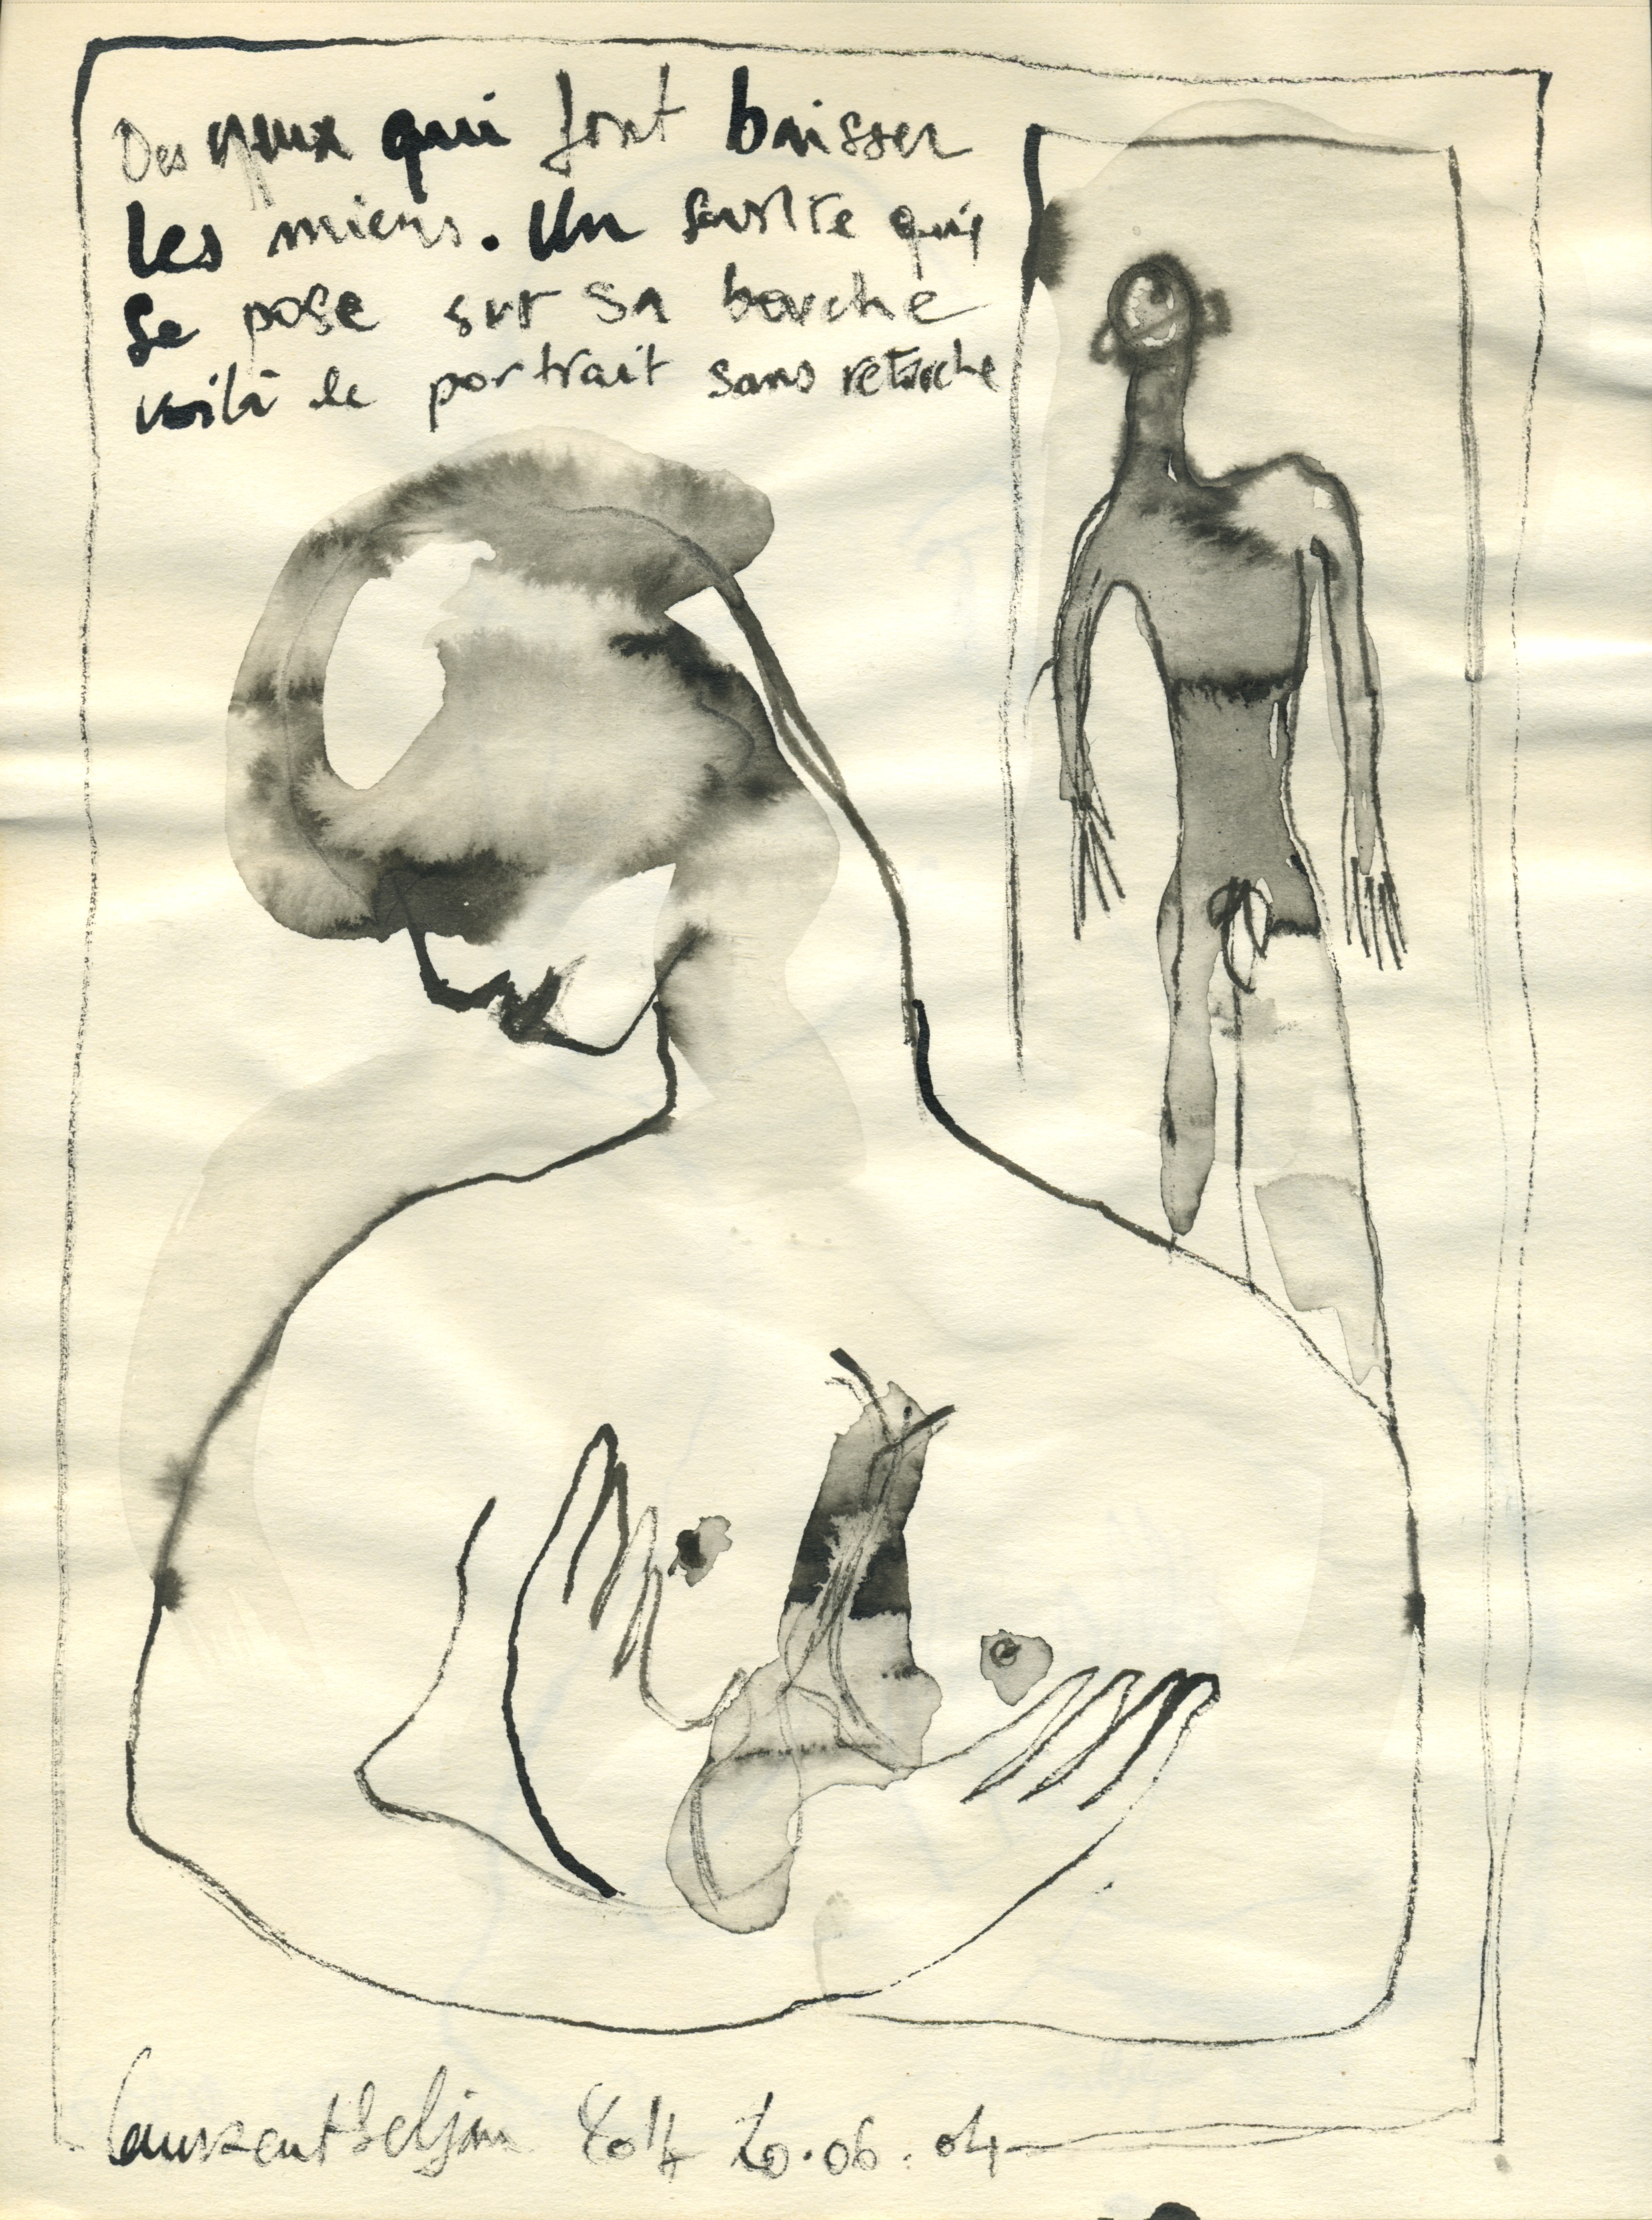 Des yeux qui font baisser
les miens. Un sourire qui
se pose sur sa bouche
voilà le portrait sans retouche
Laurent 20.06.04